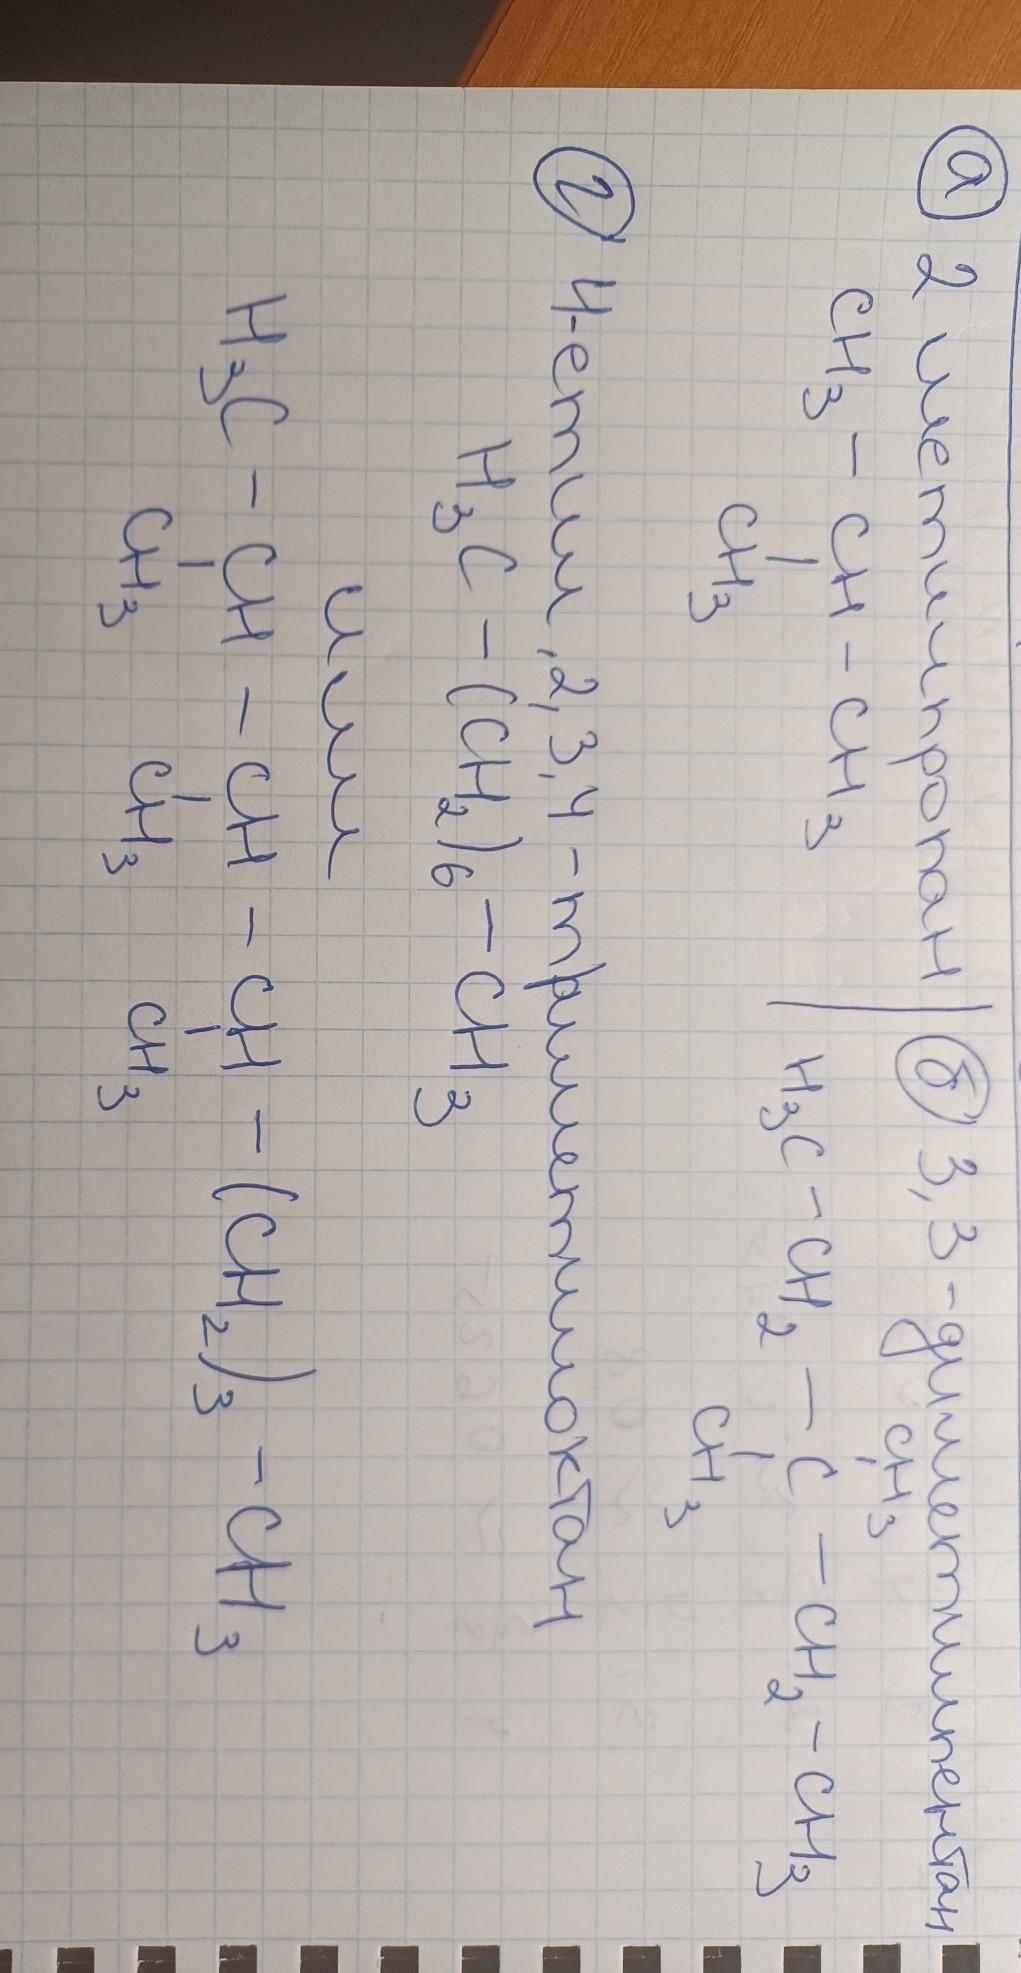 а 2 метилпропан | б 3,3-диметилпентан
CH3
CH3 - CH - CH3 H3C - CH2 - C - CH2 - CH3
CH3 CH3
г 4-етил,2,3,4-триметилоктан
H3C - (CH2)6 - CH3
или
H3C - CH - CH - CH - (CH2)3 - CH3
CH3 CH3 CH3